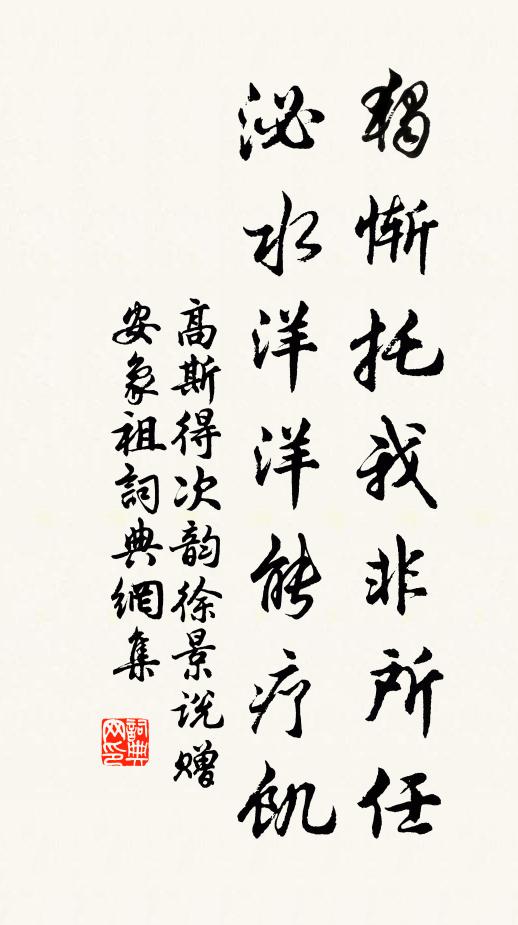 獨慚托我非所任
泌水洋洋能疗飢
高斯得次韵徐景说赠
安象祖詞典網集
詞典網印